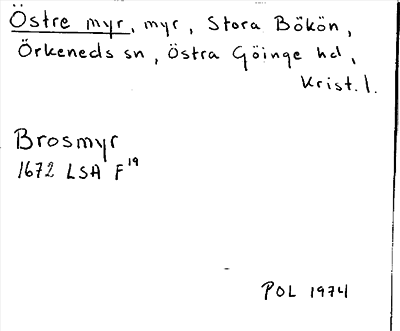 Östre myr, myr, Stora Bökön,
Örkeneds sn, Östra Göinge hd,
Krist. l.
Brosmyr
1672 LSA F19
POL 1974